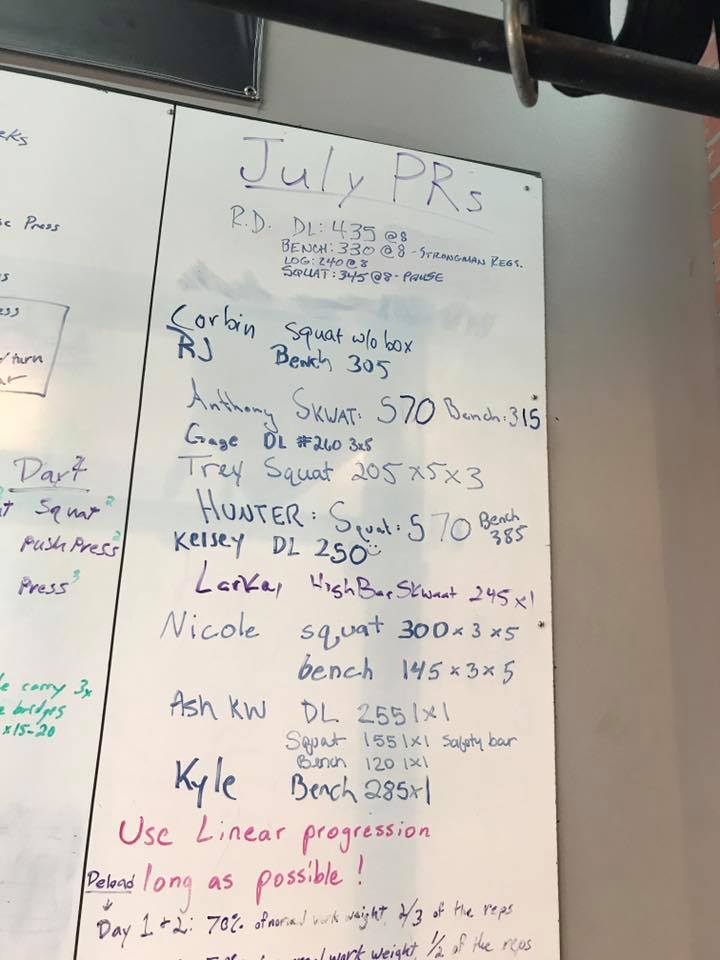 Press
turn
Day 4
Squat 2
Push Press 2
Press 3
carry 3x
bridges
x15-20
July PRs
R.D. DL: 435 @8
BENCH: 330 @8 - STRONGMAN REGS.
LOG: 240 @ 8
SQUAT: 345 @8 - PAUSE
Corbin Squat w/o box
RJ Bench 305
Anthony SKWAT: 570 Bench: 315
Gage DL #260 3x5
Trey Squat 205 x5 x 3
HUNTER: Squat: 570 Bench 385
Kelsey DL 250
LarKay HighBar Skwaat 245 x1
Nicole squat 300 x 3 x 5
bench 145 x 3 x 5
Ash KW DL 255 1x1
Squat 155 1x1 Safety bar
Bench 120 1x1
Kyle Bench 285x1
Use Linear progression
long as possible!
Deload
Day 1 + 2: 70% of normal work weight, 2/3 of the reps
work weight, 1/2 of the reps